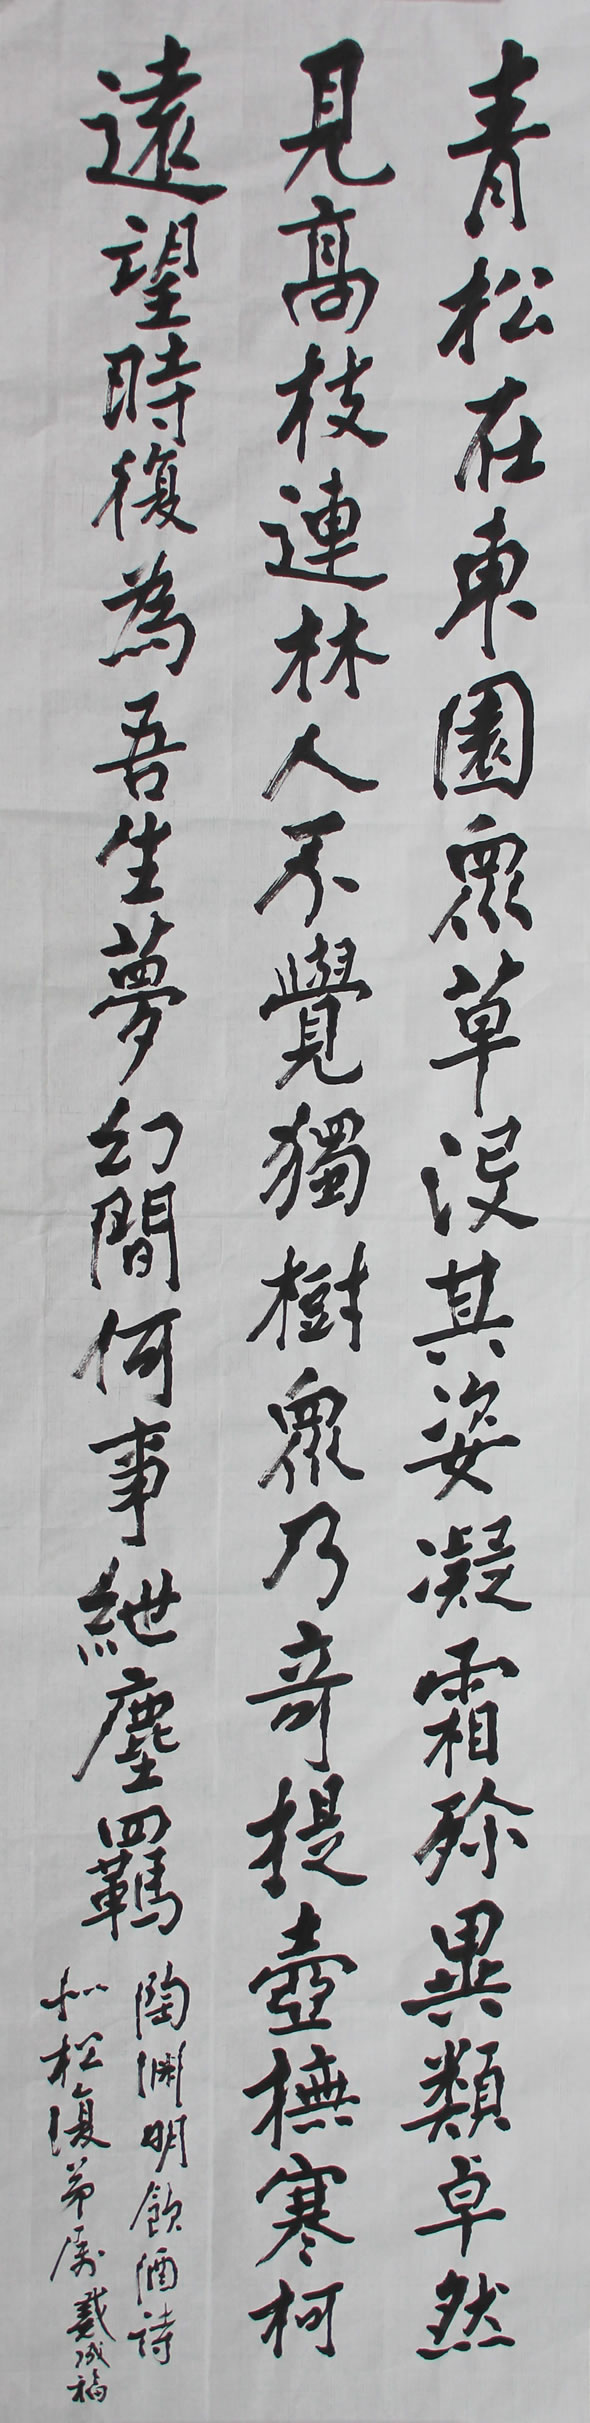 青松在東園眾草沒其姿凝霜殄異類卓然
見高枝連林人不覺獨樹眾乃奇提壺撫寒柯
遠望時復為吾生夢幻間何事紲塵羈
陶淵明飲酒詩
松復弟屬戴成福